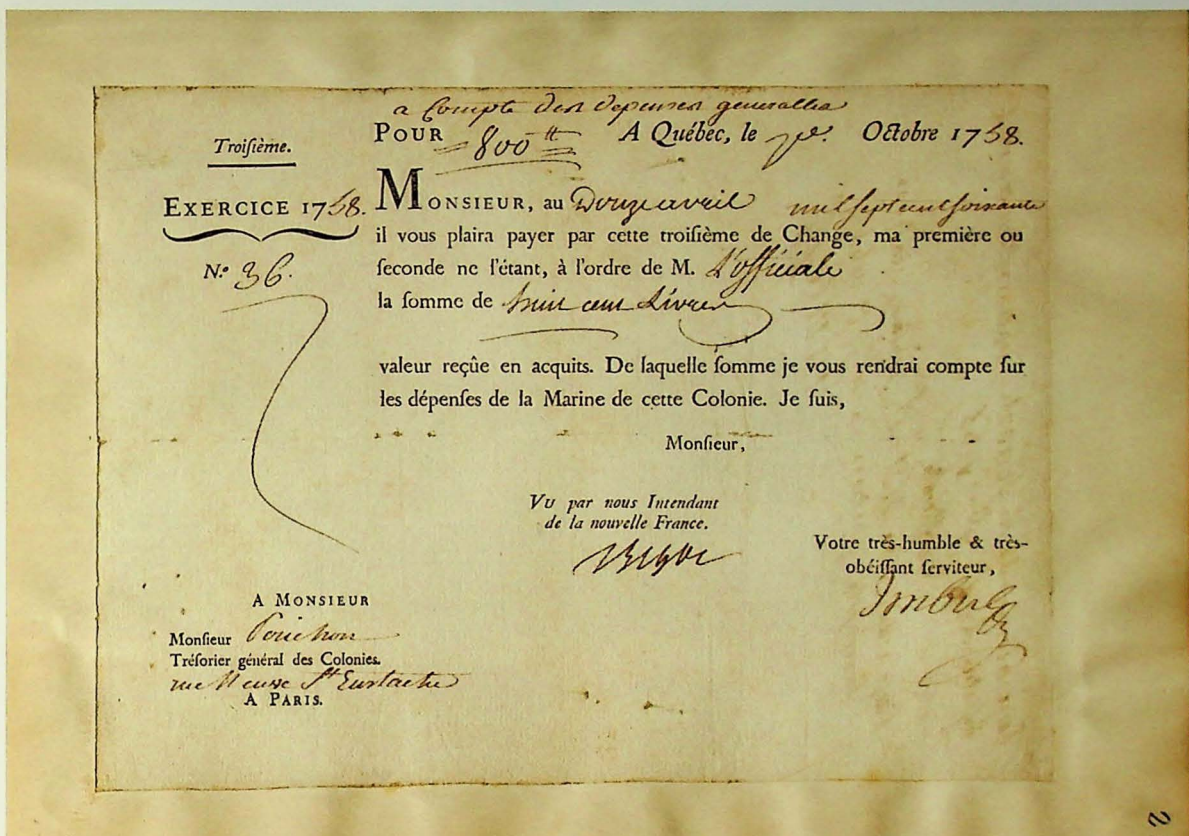 a Compte des depenses generalles
Troiſième.
POUR 800tt A Québec, le Octobre 1758.
EXERCICE 1758.
MONSIEUR, au Douze avril mil sept cent soixante
il vous plaira payer par cette troiſième de Change, ma première ou
N.º 36.
ſeconde ne l'étant, à l'ordre de M. L'officiale
la ſomme de huit cent Livres
valeur reçûe en acquits. De laquelle ſomme je vous rendrai compte ſur
les dépenſes de la Marine de cette Colonie. Je ſuis,
Monſieur,
VU par nous Intendant
de la nouvelle France.
Bigot
Votre très-humble & très-
obéiſſant ſerviteur,
Imbert
A MONSIEUR
Monſieur
Tréſorier général des Colonies.
rue Neuve St Eustache
A PARIS.
2